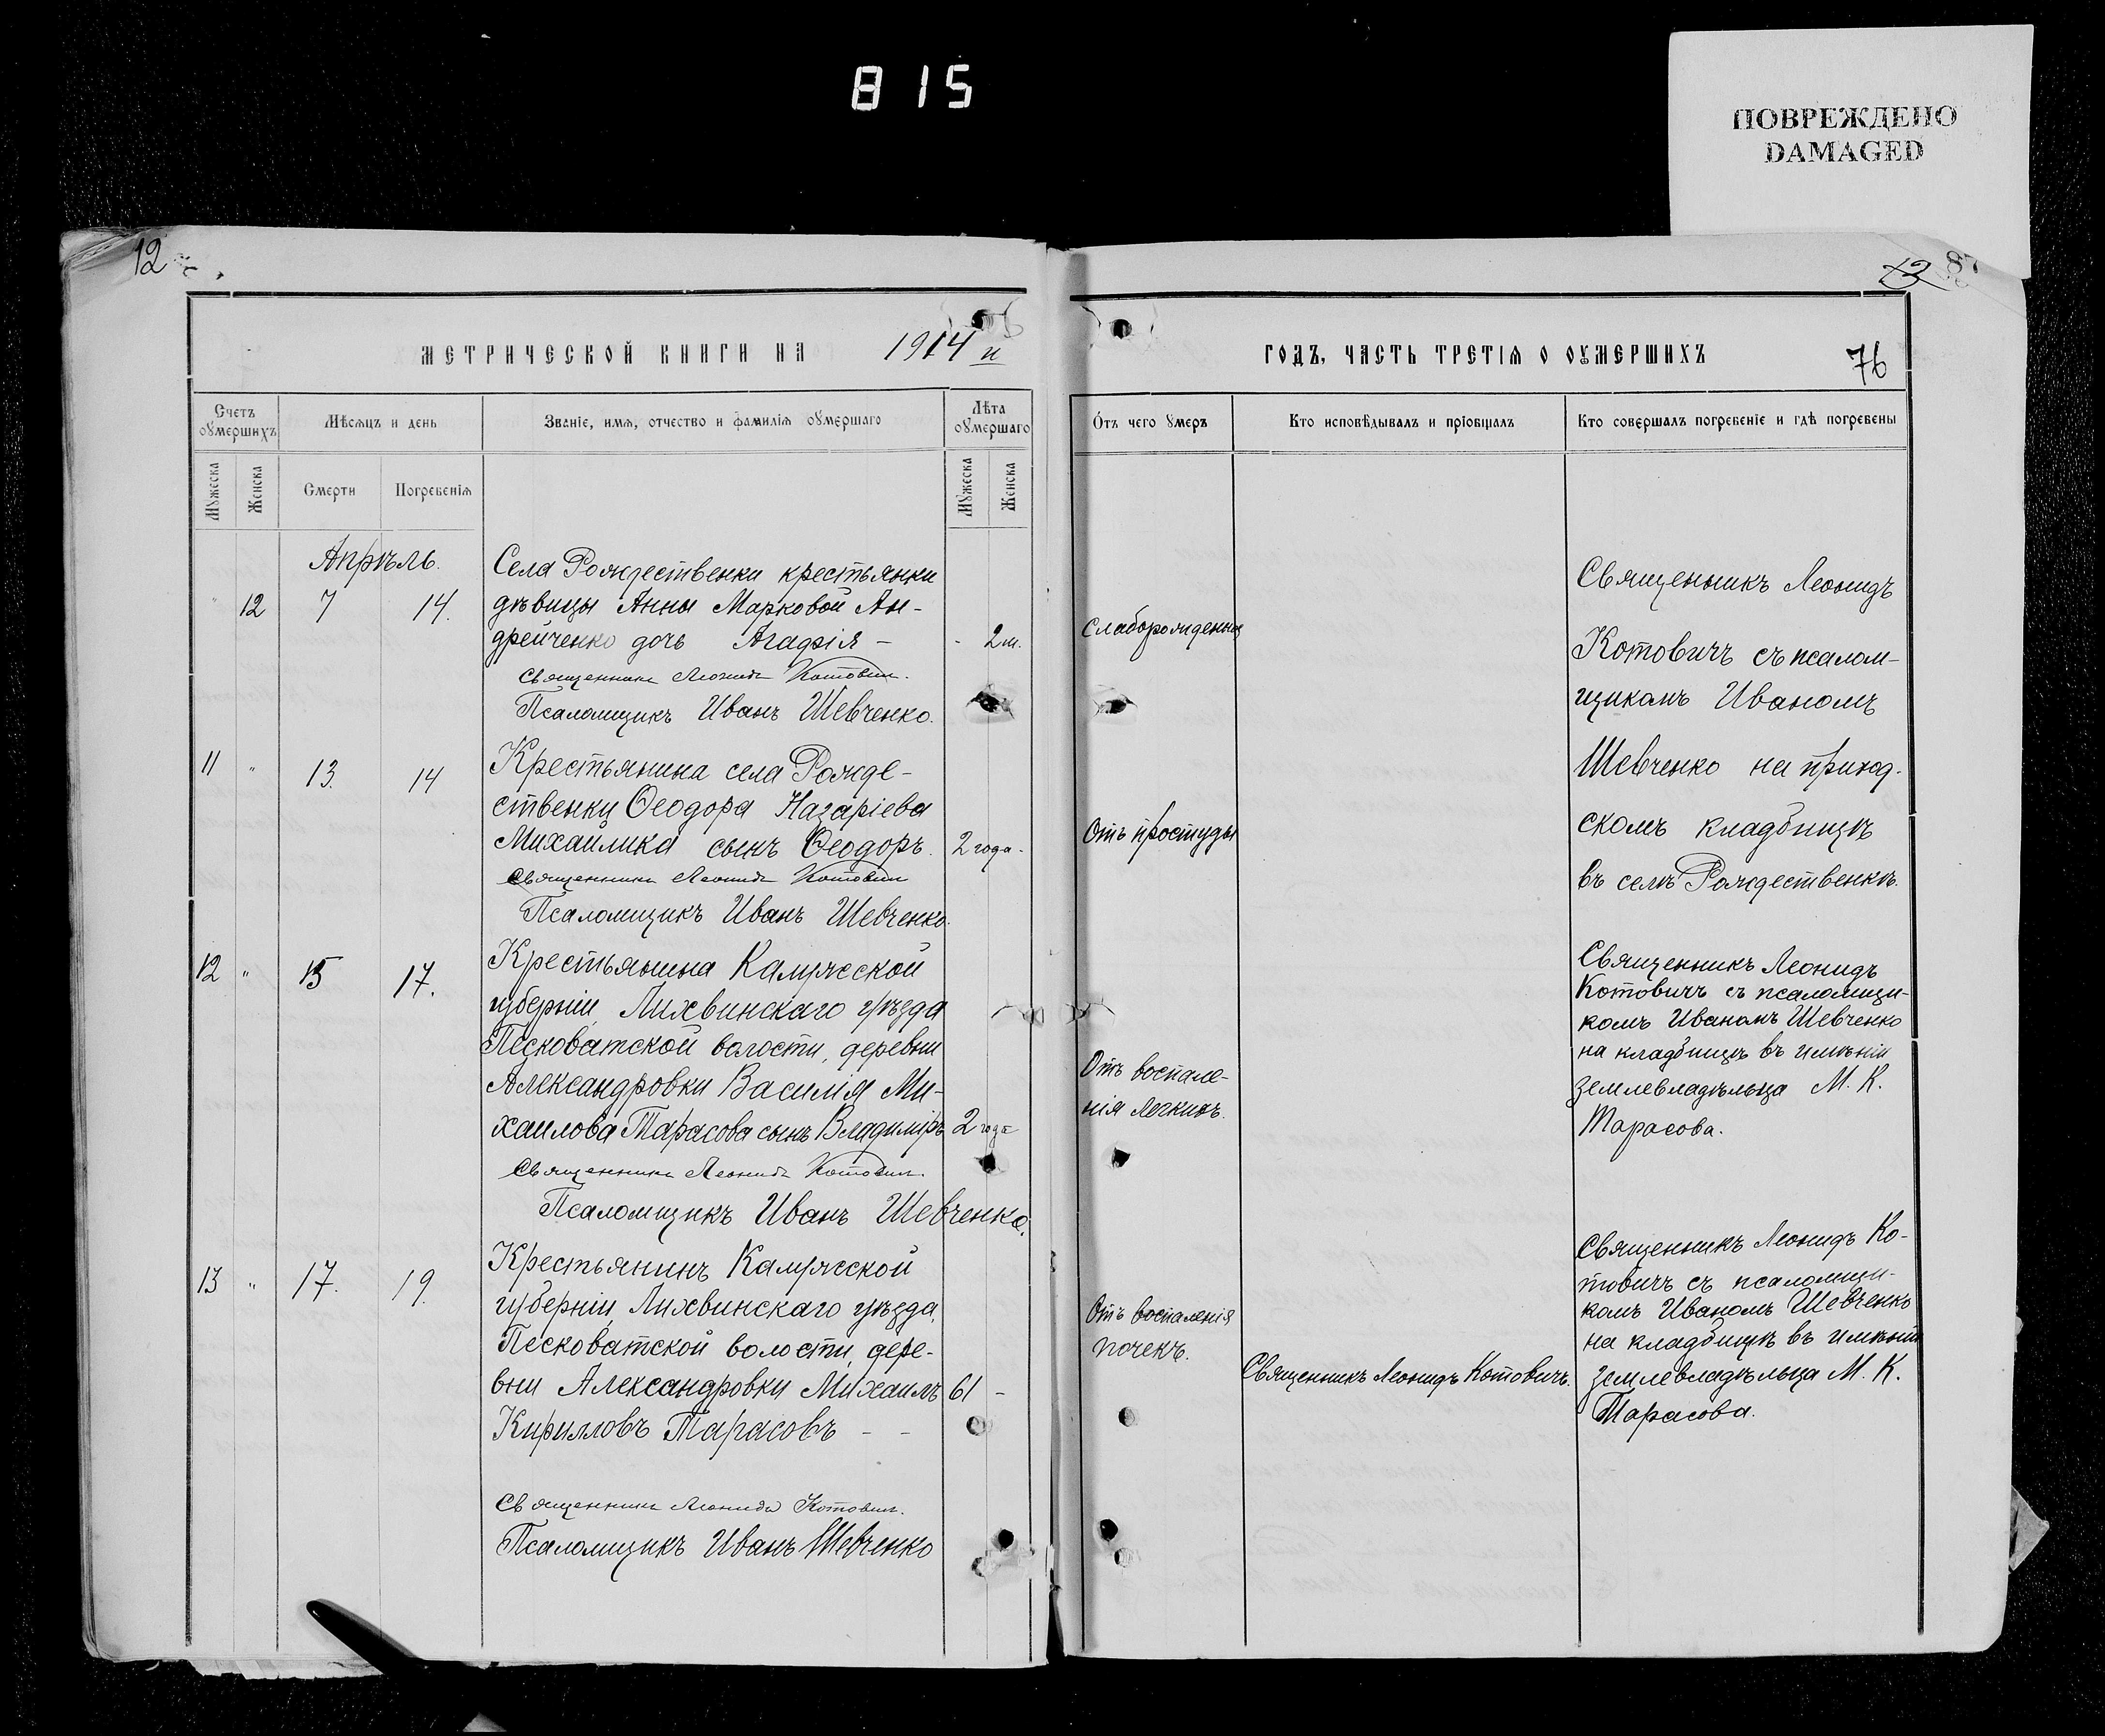 815
ПОВРЕЖДЕНО
DAMAGED
12
МЕТРИЧЕСКОЙ КНИГИ НА 1914 й
Счетъ оумершихъ
Мѣсѧцъ и день
Званіе, имѧ, отчество и фамиліѧ оумершаго
Лѣта оумершаго
Мужеска
Женска
Смерти
Погребеніѧ
Мужеска
Женска
Апрѣль.
12 7 14.
Села Рождественки крестьянки
дѣвицы Анны Марковой Ан-
дрейченко дочь Агафія – 2 м.
Священникъ Леонидъ Котовичъ.
Псаломщикъ Иванъ Шевченко.
11 " 13. 14
Крестьянина села Рожде-
ственки Ѳеодора Назаріева
Михайлика сынъ Ѳеодоръ. 2 года.
Священникъ Леонидъ Котовичъ
Псаломщикъ Иванъ Шевченко.
12 " 15 17.
Крестьянина Калужской
губерніи, Лихвинскаго уѣзда
Песковатской волости, деревни
Александровки Василія Ми-
хаилова Тарасова сынъ Владиміръ 2 года
Священникъ Леонидъ Котовичъ.
Псаломщикъ Иванъ Шевченко.
13 " 17. 19.
Крестьянинъ Калужской
губерніи, Лихвинскаго уѣзда,
Песковатской волости, дере-
вни Александровки Михаилъ 61 –
Кирилловъ Тарасовъ – –
Священникъ Леонидъ Котовичъ.
Псаломщикъ Иванъ Шевченко
12 87
ГОДЪ, ЧАСТЬ ТРЕТІѦ О ОУМЕРШИХЪ
76
Отъ чего умеръ
Кто исповѣдывалъ и пріобщалъ
Кто совершалъ погребеніе и гдѣ погребены
Слаборожденія
Отъ простуды
Отъ воспале-
нія легкихъ.
Отъ воспаленія
почекъ.
Священникъ Леонидъ Котовичъ.
Священникъ Леонидъ
Котовичъ съ псалом-
щикомъ Иваномъ
Шевченко на приход-
скомъ кладбищѣ
въ селѣ Рождественкѣ.
Священникъ Леонидъ
Котовичъ съ псаломщи-
комъ Иваномъ Шевченко
на кладбищѣ въ имѣніи
землевладѣльца М. К.
Тарасова.
Священникъ Леонидъ Ко-
товичъ съ псаломщи-
комъ Иваномъ Шевченко
на кладбищѣ въ имѣніи
землевладѣльца М. К.
Тарасова.